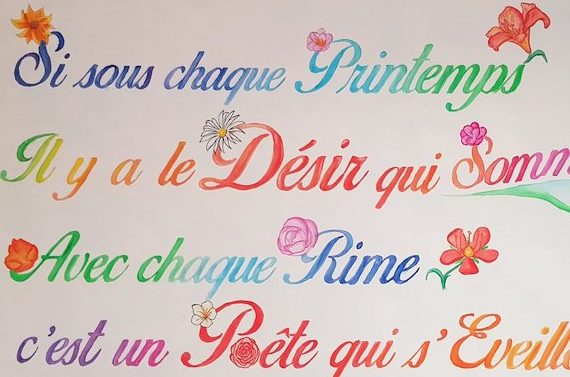 Si sous chaque Printemps
Il y a le Désir qui Somm
Avec chaque Rime
c'est un Poête qui s'Eveille